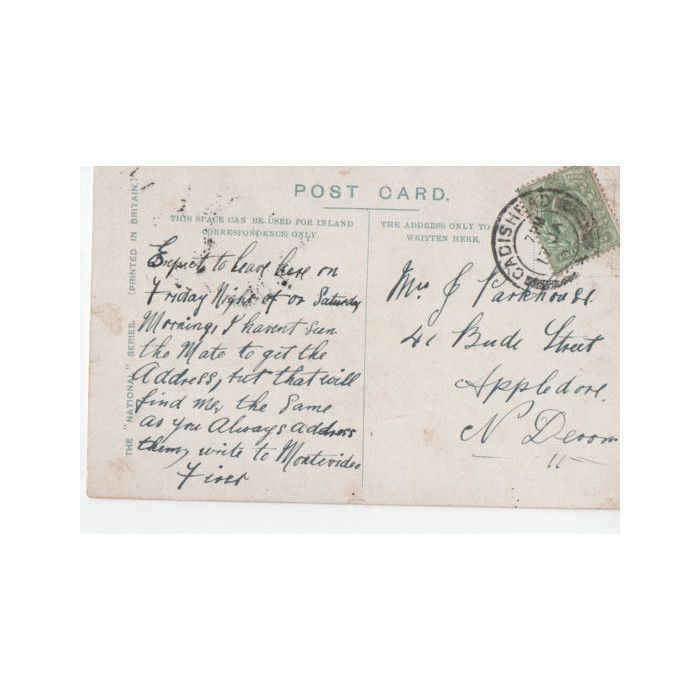 POST CARD.
THIS SPACE CAN BE USED FOR INLAND
CORRESPONDENCE ONLY.
THE ADDRESS ONLY TO
WRITTEN HERE.
THE "NATIONAL" SERIES.
(PRINTED IN BRITAIN.)
CADISHEAD
Expect to leave here on
Friday Night of or Saturday
Morning, I havent seen
the Mate to get the
Address, but that will
find me, the Same
as you Always address
them, write to Montevideo
First
Mrs J Parkhouse
41 Bude Street
Appledore
N Devon